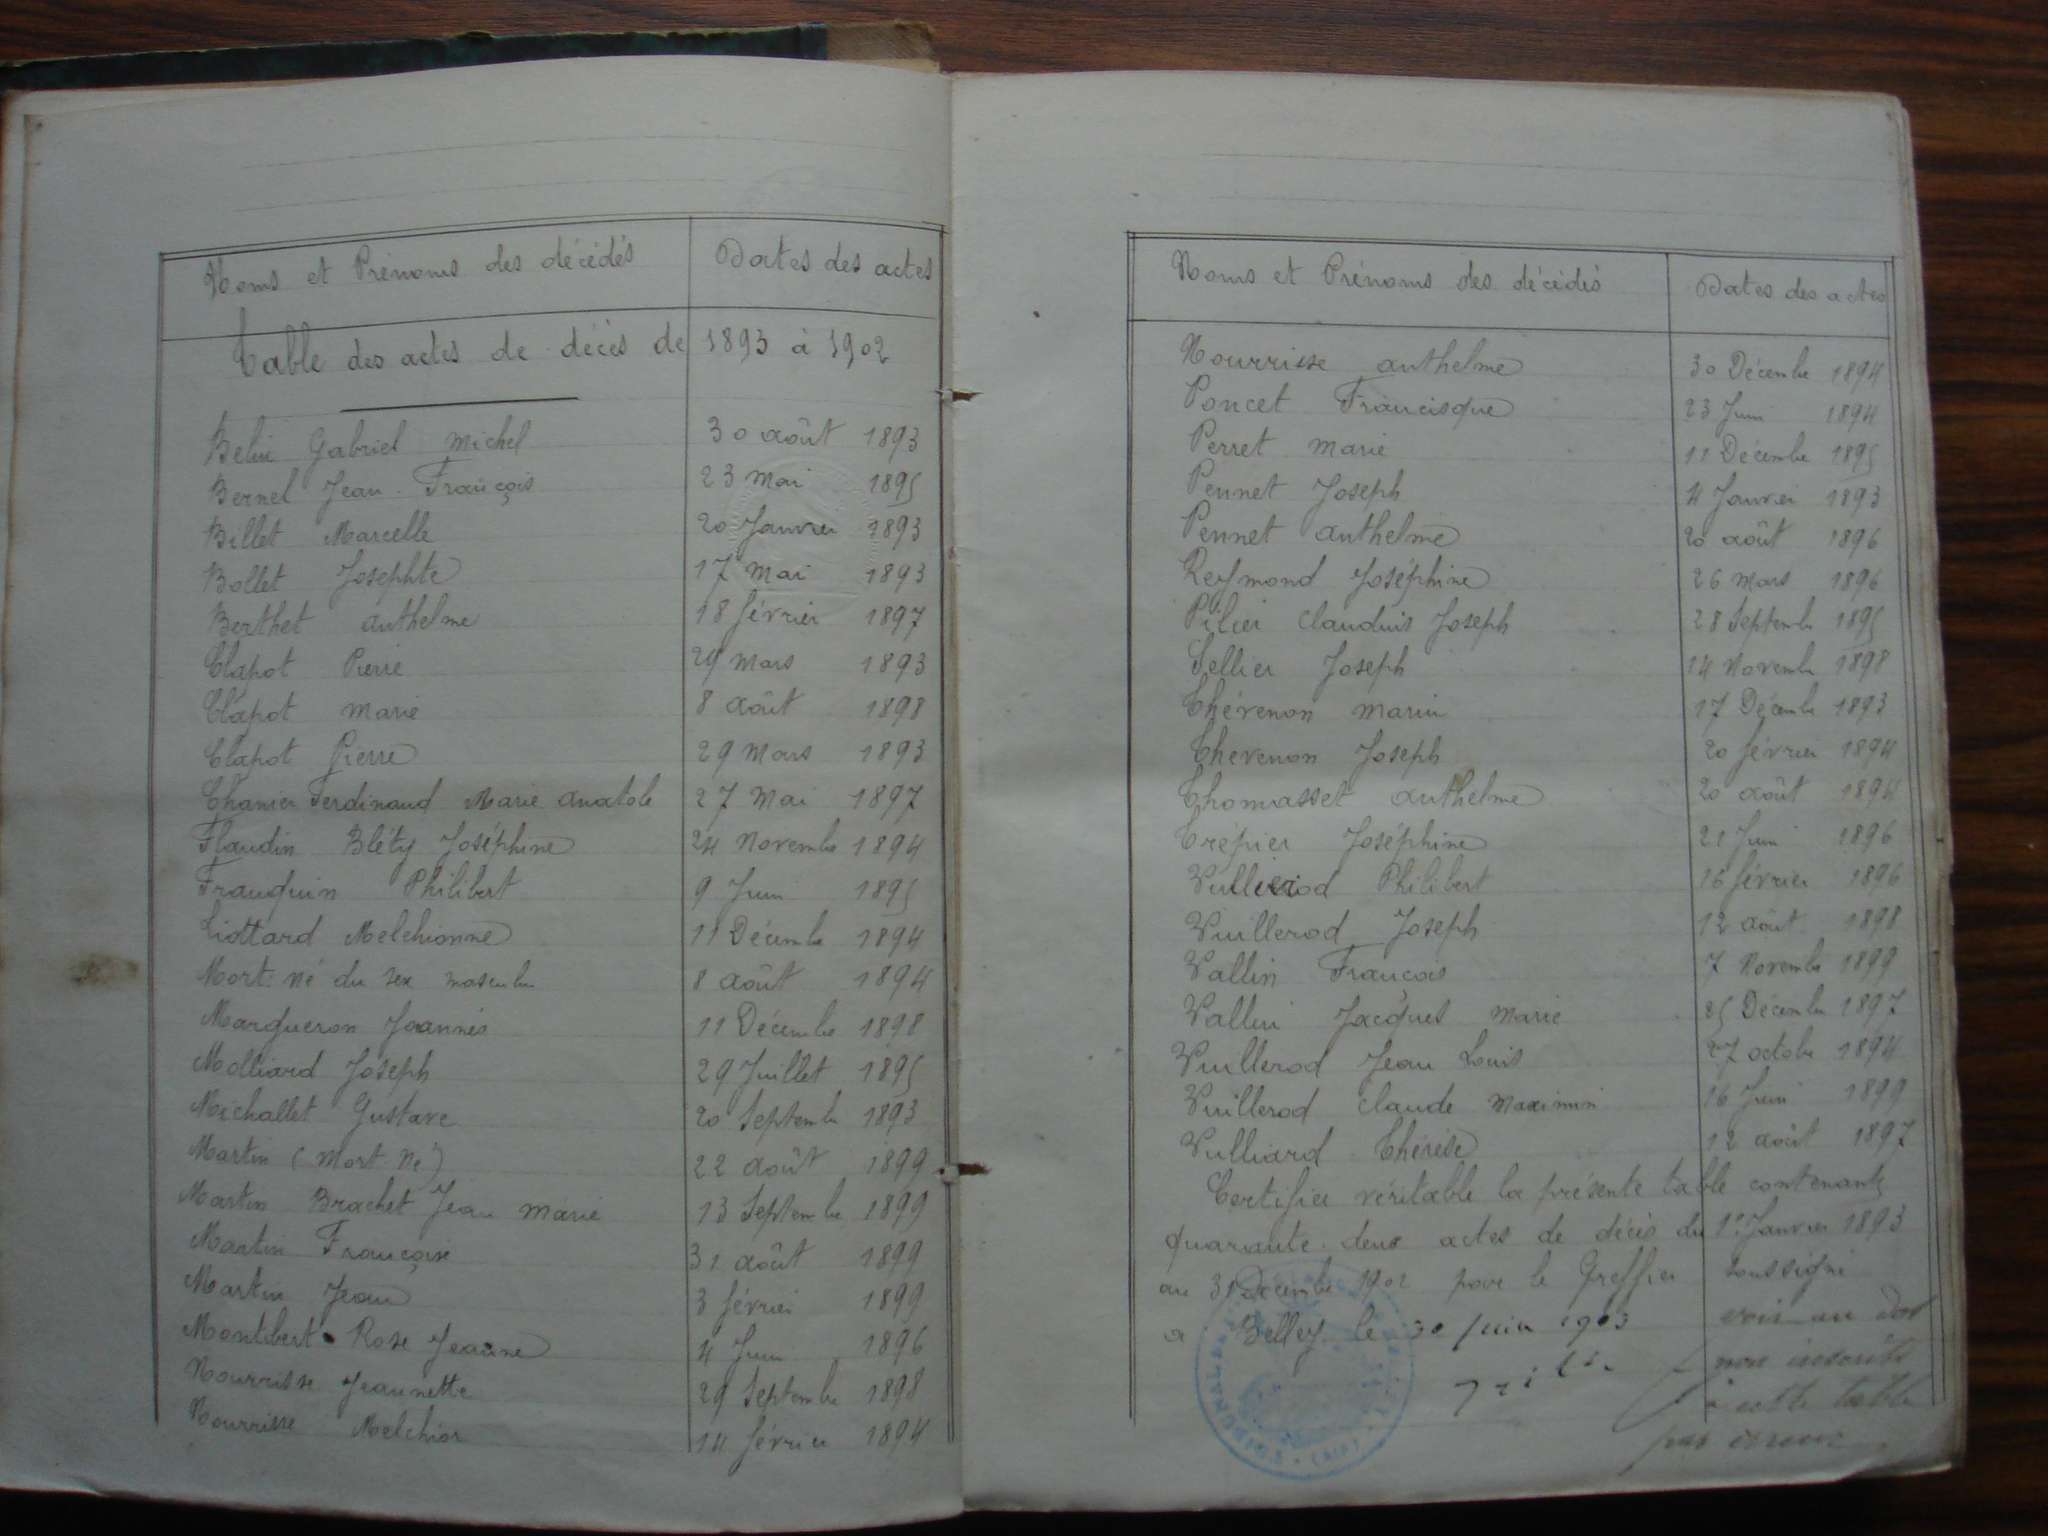 Noms et Prénoms des décédés Dates des actes
Table des actes de décès de 1893 à 1902
Belin Gabriel Michel 30 août 1893
Bernel Jean François 23 Mai 1895
Billet Marcelle 20 Janvier 1893
Bollet Josephte 17 Mai 1893
Berthet Anthelme 18 février 1897
Clapot Pierre 29 Mars 1893
Clapot Marie 8 août 1898
Clapot Pierre 29 Mars 1893
Chanier Ferdinand Marie Anatole 27 Mai 1897
Flaudin Bléty Joséphine 24 Novembre 1894
Franquin Philibert 9 Juin 1895
Liottard Melchionne 11 Décembre 1894
Mort né du sex masculin 8 août 1894
Margueron Joannès 11 Décembre 1898
Molliard Joseph 29 Juillet 1895
Michallet Gustave 20 Septembre 1893
Martin (Mort Né) 22 août 1899
Martin Brachet Jean Marie 13 Septembre 1899
Martin Françoise 31 août 1899
Martin Jean 3 février 1899
Montibert Rose Jeanne 4 Juin 1896
Nourrisse Jeannette 29 Septembre 1898
Nourrisse Melchior 14 février 1894
Noms et Prénoms des décédés Dates des actes
Nourrisse Anthelme 30 Décembre 1894
Poncet Francisque 23 Juin 1894
Perret Marie 11 Décembre 1895
Pennet Joseph 4 Janvier 1893
Pennet Anthelme 20 août 1896
Reymond Joséphine 26 Mars 1896
Pilier Claudius Joseph 28 Septembre 1895
Sellier Joseph 14 Novembre 1898
Thévenon Marin 17 Décembre 1893
Thévenon Joseph 20 février 1894
Thomasset Anthelme 20 août 1894
Trépier Joséphine 21 Juin 1896
Philibert 16 février 1896
Vuillerod Joseph 12 août 1898
Vallin François 7 Novembre 1899
Vallin Jacques Marie 25 Décembre 1897
Vuillerod Jean Louis 27 octobre 1894
Vuillerod Claude Maximin 16 Juin 1899
Vulliard Thérèse 12 août 1897
Certifier véritable la présente table contenant
quarante deux actes de décès du 1er Janvier 1893
au 31 Décembre 1902 par le Greffier soussigné
a Belley le 30 juin 1903
voir au dos
non inscrits
à cette table
par erreur